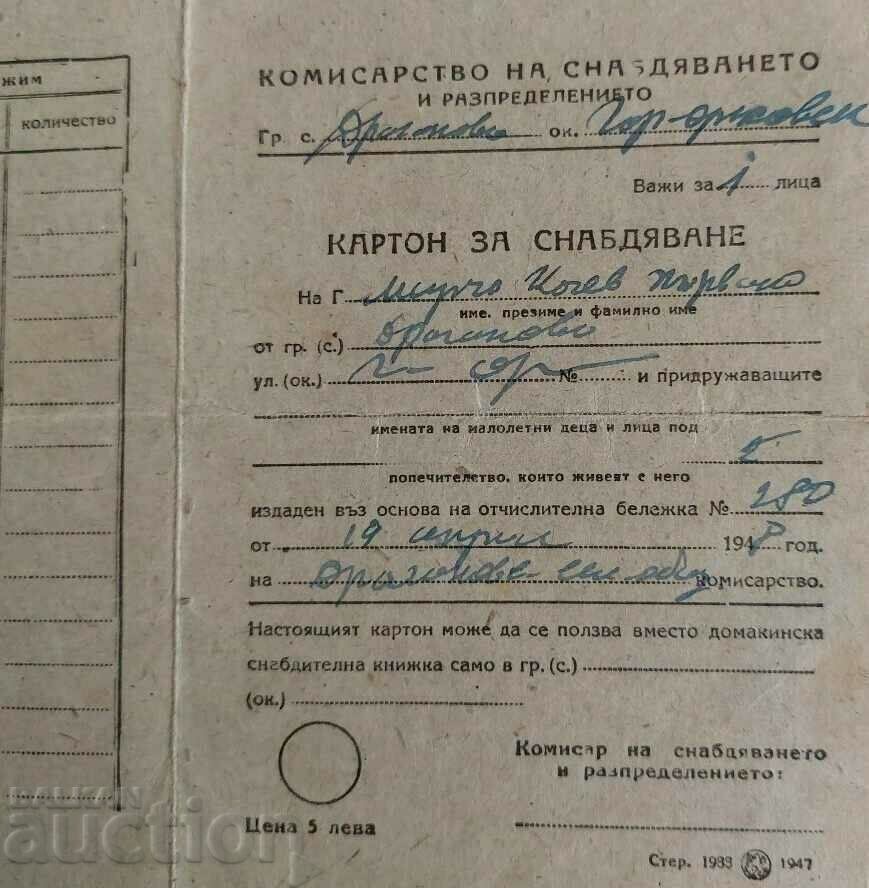 жим
количество
КОМИСАРСТВО НА СНАБДЯВАНЕТО
И РАЗПРЕДЕЛЕНИЕТО
Гр с. Драганово ок. Гор-оряховск
Важи за 1 лица
КАРТОН ЗА СНАБДЯВАНЕ
На Г. Минчо Колев
име, презиме и фамилно име
от гр. (с.) Драганово
ул. (ок.) Г- ор- № и придружаващите
имената на малолетни деца и лица под
попечителство, които живеят с него
издаден въз основа на отчислителна бележка № 280
от 19 април 1948 год.
на Драгановско комисарство.
Настоящият картон може да се ползва вместо домакинска
снабдителна книжка само в гр. (с.)
(ок.)
Комисар на снабдяването
и разпределението:
Цена 5 лева
Стер. 1933 1947
BALKAN
auction